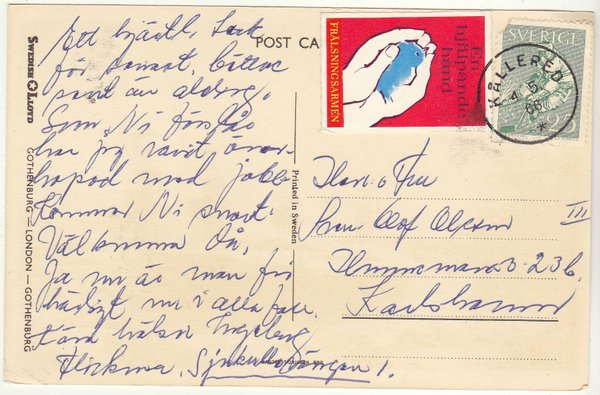 Ett hjärtl. tack
för senast, bättre
sent än aldrig.
Som Ni förstås
har jag varit över-
hopad med jobb.
Kommer Ni snart.
Välkomna då,
Ja nu är man fri
ledigt nu i alla fall.
Kära hälsn Ingeborg
Flickorna, 1.
POST CA
SWEDISH LLOYD
GOTHENBURG — LONDON — GOTHENBURG
Printed in Sweden
FRÄLSNINGSARMEN
En
hjälpande
hand
SVERIGE
KÅLLERED
4.5.
66
Herr o Fru
Sven Olof Olsson
23 b
III
Karlshamn